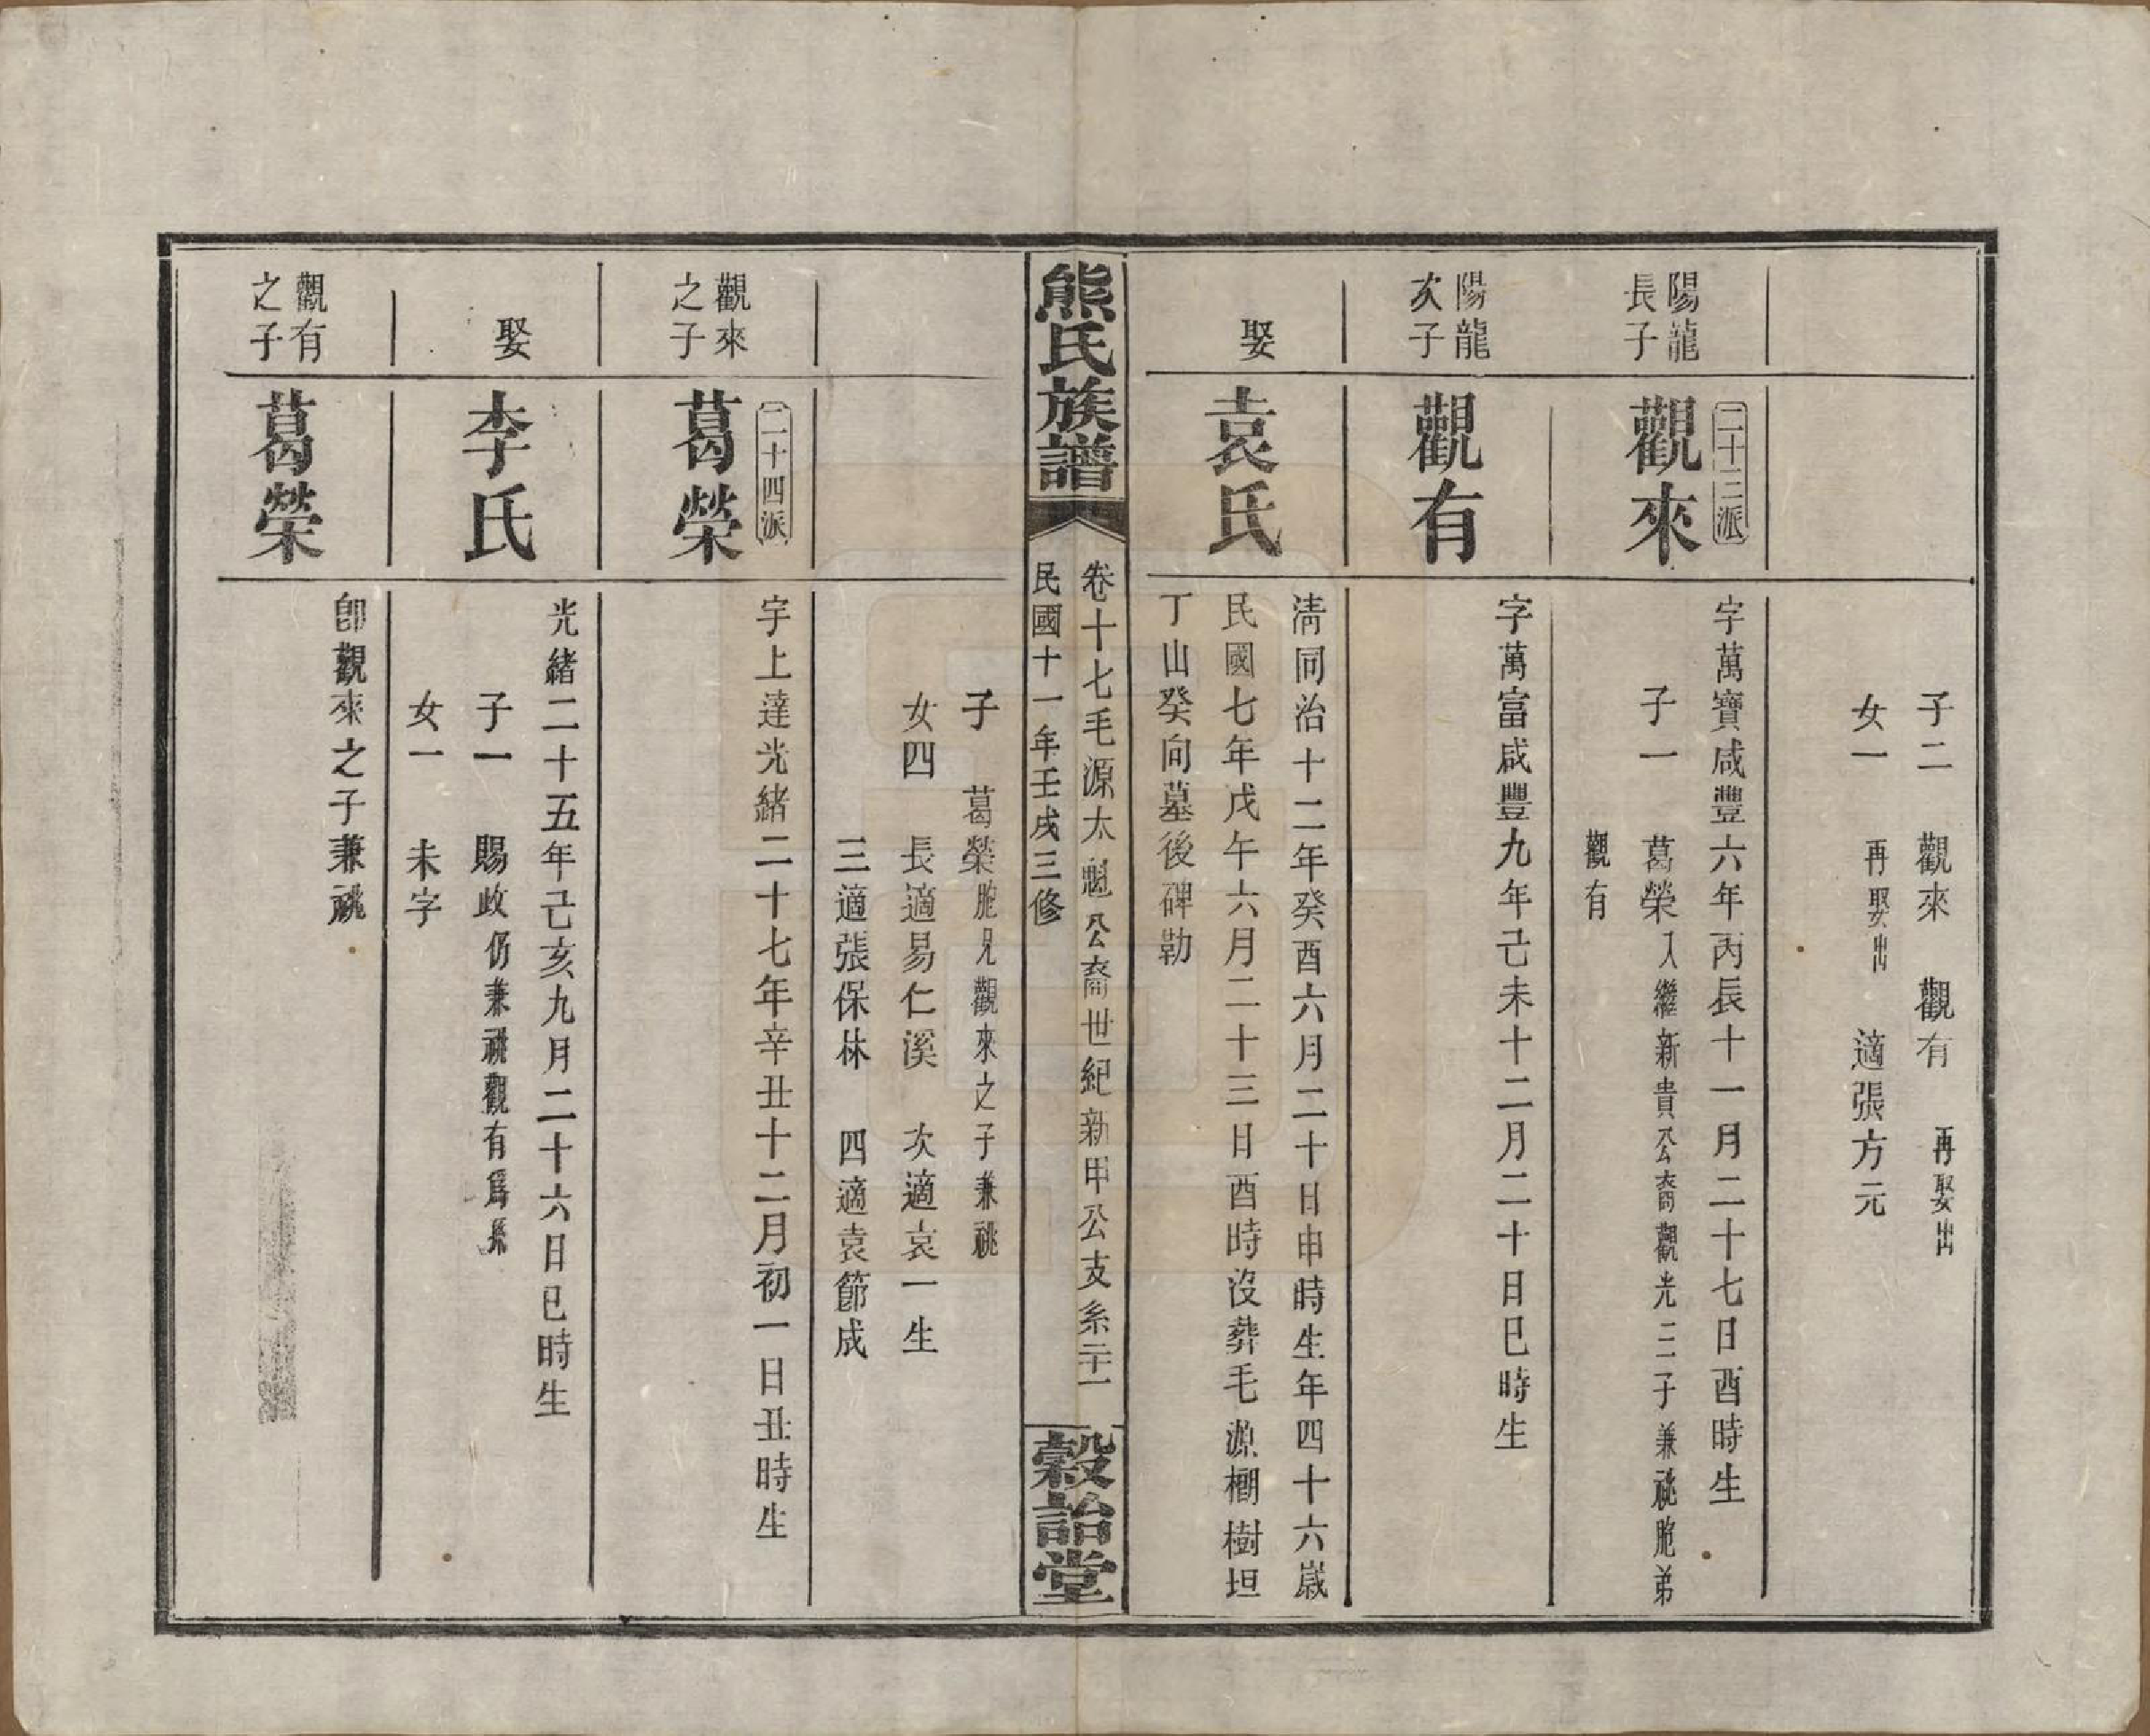 子二　觀來　觀有　再娶出
女一　再娶出　適張方元
陽龍長子
二十三派
觀來
字萬寶咸豐六年丙辰十一月二十七日酉時生
子一　葛榮入繼新貴公裔觀光二子兼祧胞弟
觀有
陽龍次子
觀有
字萬富咸豐九年己未十二月二十日巳時生
娶
袁氏
清同治十二年癸酉六月二十日申時生年四十六歲
民國七年戊午六月二十三日酉時沒葬毛源棚樹坦
丁山癸向墓後碑勒
熊氏族譜
卷十七毛源太魁公裔世紀新甲公支系二十一
民國十一年壬戌三修
穀詒堂
子　葛榮胞兄觀來之子兼祧
女四　長適易仁溪　次適袁一生
三適張保林　四適袁節成
觀來之子
二十四派
葛榮
字上達光緒二十七年辛丑十二月初一日丑時生
娶
李氏
光緒二十五年己亥九月二十六日巳時生
子一　賜政仍兼祧觀有為孫
女一　未字
觀有之子
葛榮
卽觀來之子兼祧